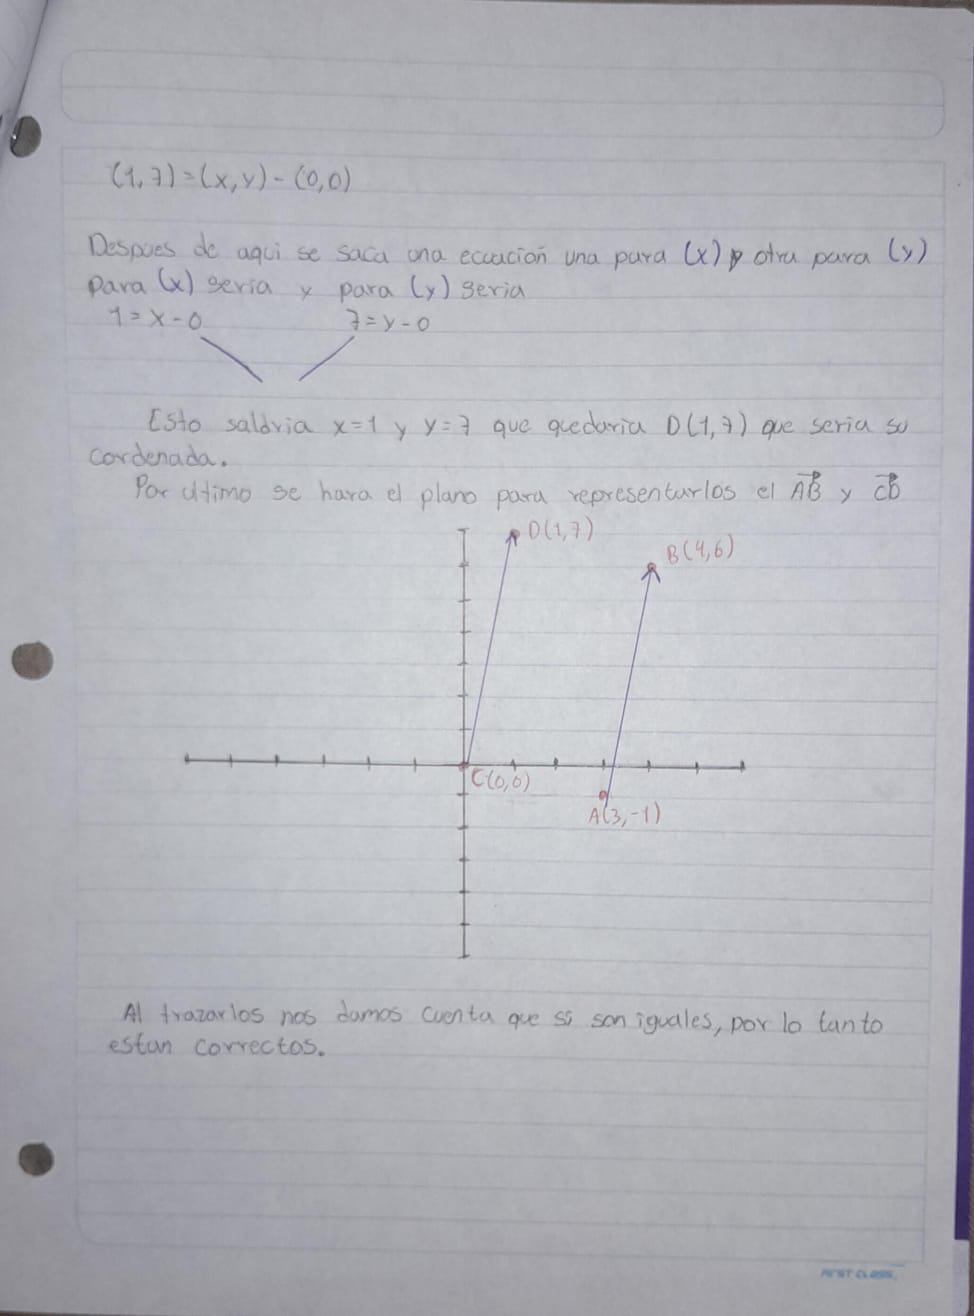 (1,7)=(x,y)-(0,0)
Despues de aqui se saca una ecuación una para (x) y otra para (y)
para (x) seria y para (y) seria
1=x-0 7=y-0
Esto saldria x=1 y y=7 que quedaria D(1,7) que seria su
cordenada.
Por ultimo se hara el plano para representarlos el AB y CD
D(1,7)
B(4,6)
C(0,0)
A(3,-1)
Al trazarlos nos damos cuenta que si son iguales, por lo tanto
estan correctos.
FIRST CLASS